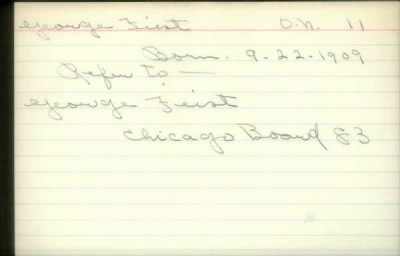 George Fiest O.N. 11
Born. 9-22-1909
Refer to —
George Feist
Chicago Board 83